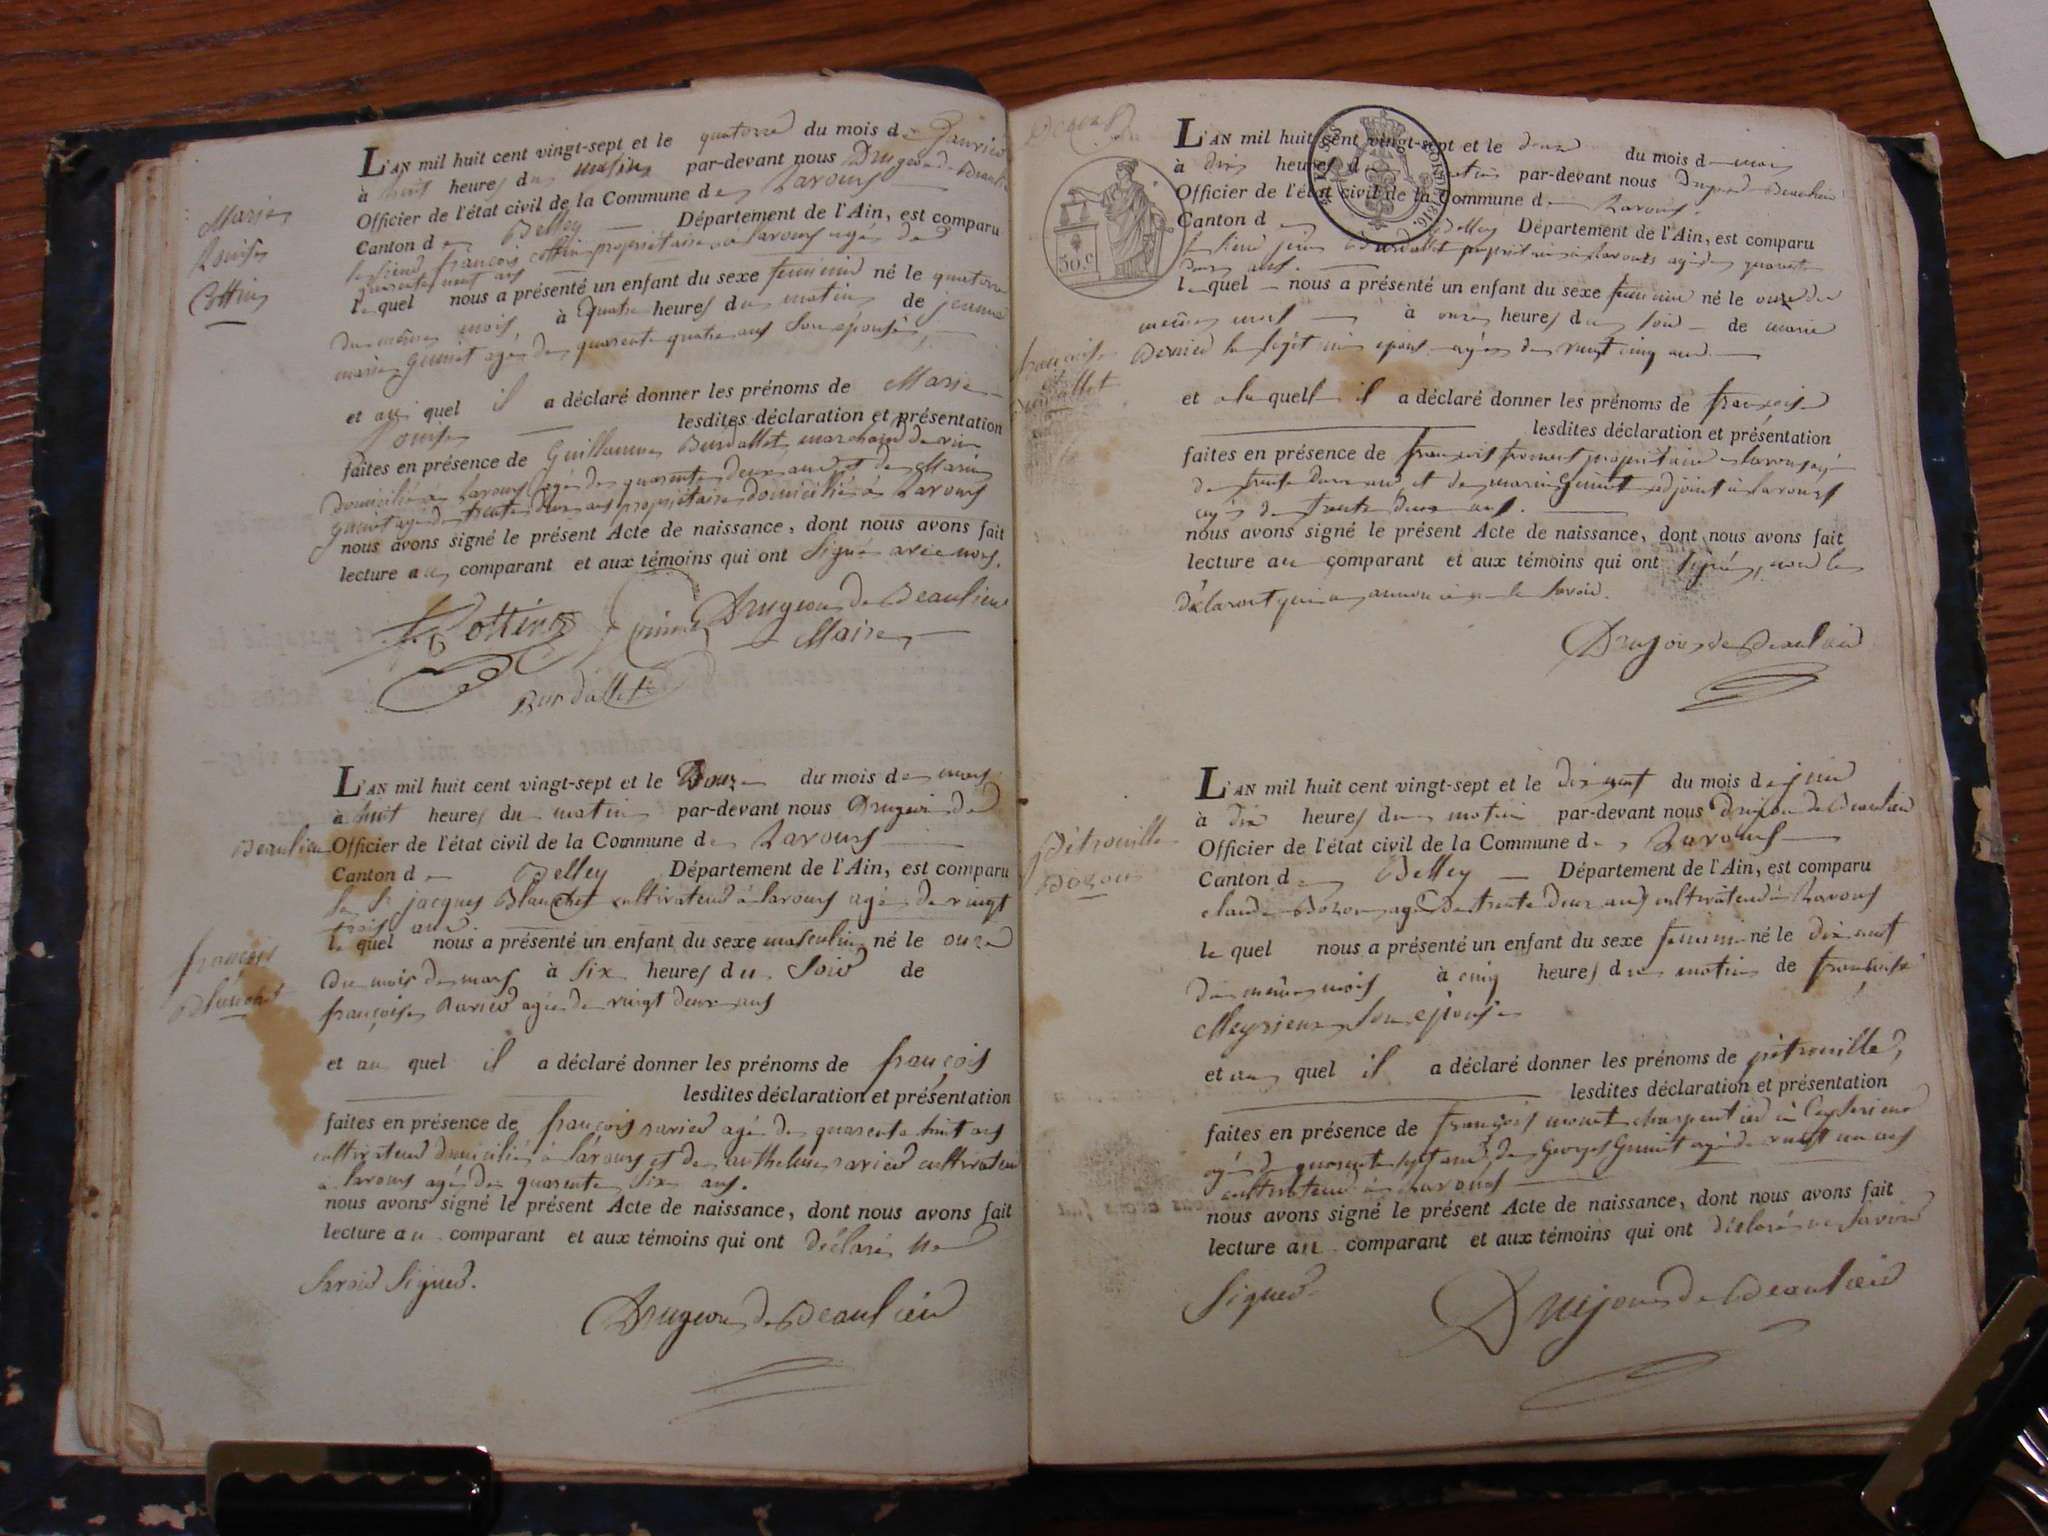 L'AN mil huit cent vingt-sept et le quatorze du mois de Janvier
à huit heures du matin par-devant nous Drugeon de Beaulieu
Officier de l'état civil de la Commune de Lavours
Canton de Belley Département de l'Ain, est comparu
le sieur françois Cottin propriétaire à Lavours agé de
quarente neuf ans
le quel nous a présenté un enfant du sexe feminin né le quatorze
du même mois, à quatre heures du matin de jeanne
marie guinet agée de quarente quatre ans son épouse,
et au quel il a déclaré donner les prénoms de Marie
Louise lesdites déclaration et présentation
faites en présence de Guillaume Burdallet marchand de vin
domicilié à Lavours agé de quarente deux ans et de Marin
guinet agé de trente deux ans propriétaire domicilié à Lavours
nous avons signé le présent Acte de naissance, dont nous avons fait
lecture au comparant et aux témoins qui ont Signé avec nous.
Cottin guinet Drugeon de Beaulieu
Maire
Burdallet
Marie
Louise
Cottin
L'AN mil huit cent vingt-sept et le Douze du mois de mars
à huit heures du matin par-devant nous Drugeon de
Beaulieu Officier de l'état civil de la Commune de Lavours
Canton de Belley Département de l'Ain, est comparu
le Sr jacques Blanchet cultivateur à Lavours agé de vingt
trois ans.
le quel nous a présenté un enfant du sexe masculin né le onze
du mois de mars à six heures du Soir de
françoise Ravier agée de vingt deux ans
et au quel il a déclaré donner les prénoms de françois
lesdites déclaration et présentation
faites en présence de françois ravier agé de quarente huit ans
cultivateur domicilié à lavours et de anthelme ravier cultivateur
à lavours agé de quarente six ans.
nous avons signé le présent Acte de naissance, dont nous avons fait
lecture au comparant et aux témoins qui ont déclaré ne
Savoir Signer.
Drugeon de Beaulieu
françois
Blanchet
L'AN mil huit cent vingt-sept et le douze du mois de mai
à dix heures du matin par-devant nous Drugeon de Beaulieu
Officier de l'état civil de la Commune de Lavours.
Canton de Belley Département de l'Ain, est comparu
le sieur jean Burdallet propriétaire à Lavours agé de quarente
deux ans.
le quel nous a présenté un enfant du sexe feminin né le onze du
même mois à onze heures du soir de marie
Dernier sa legitime epouse agée de vingt cinq ans
et a la quelle il a déclaré donner les prénoms de françoise
lesdites déclaration et présentation
faites en présence de françois froment propriétaire à lavours agé
de trente deux ans et de marin guinet adjoint à lavours
agé de trente deux ans.
nous avons signé le présent Acte de naissance, dont nous avons fait
lecture au comparant et aux témoins qui ont signé, non le
déclarant qui a annoncé ne le Savoir.
Drugeon de Beaulieu
françoise
Burdallet
50.c
TIMBRE ROYAL 1816.
L'AN mil huit cent vingt-sept et le dix neuf du mois de juin
à dix heures du matin par-devant nous drugeon de Beaulieu
Officier de l'état civil de la Commune de Lavours
Canton de Belley Département de l'Ain, est comparu
claude Bozon agé de trente deux ans cultivateur à Lavours
le quel nous a présenté un enfant du sexe feminin né le dix neuf
du même mois à cinq heures du matin de françoise
Meyrieux son epouse
et au quel il a déclaré donner les prénoms de pétronille,
lesdites déclaration et présentation
faites en présence de françois monet charpentier à Ceyserieu
agé de quarente sept ans, de Georges Guinet agé de vingt un ans
cultivateur à Lavours
nous avons signé le présent Acte de naissance, dont nous avons fait
lecture au comparant et aux témoins qui ont déclaré ne savoir
Signer.
Drujeon de Beaulieu
Pétronille
Bozon